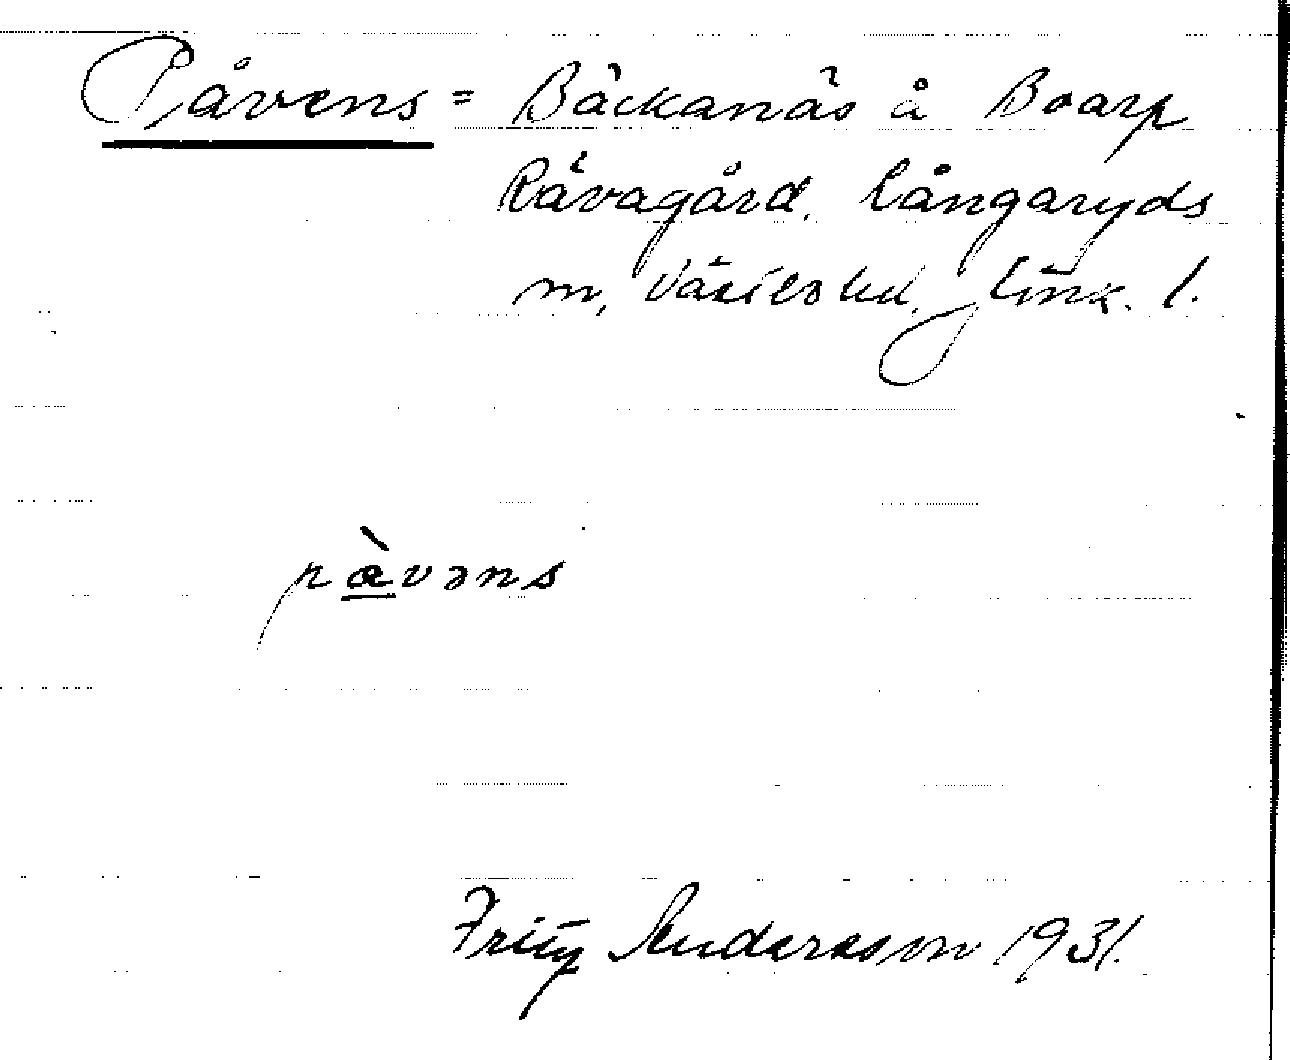 Påvens = Bäckanäs å Boarp
Rävagård, Långaryds
m, Västbo hd, Jönk. l.
pàvəns
Fritz Andersson 1931.